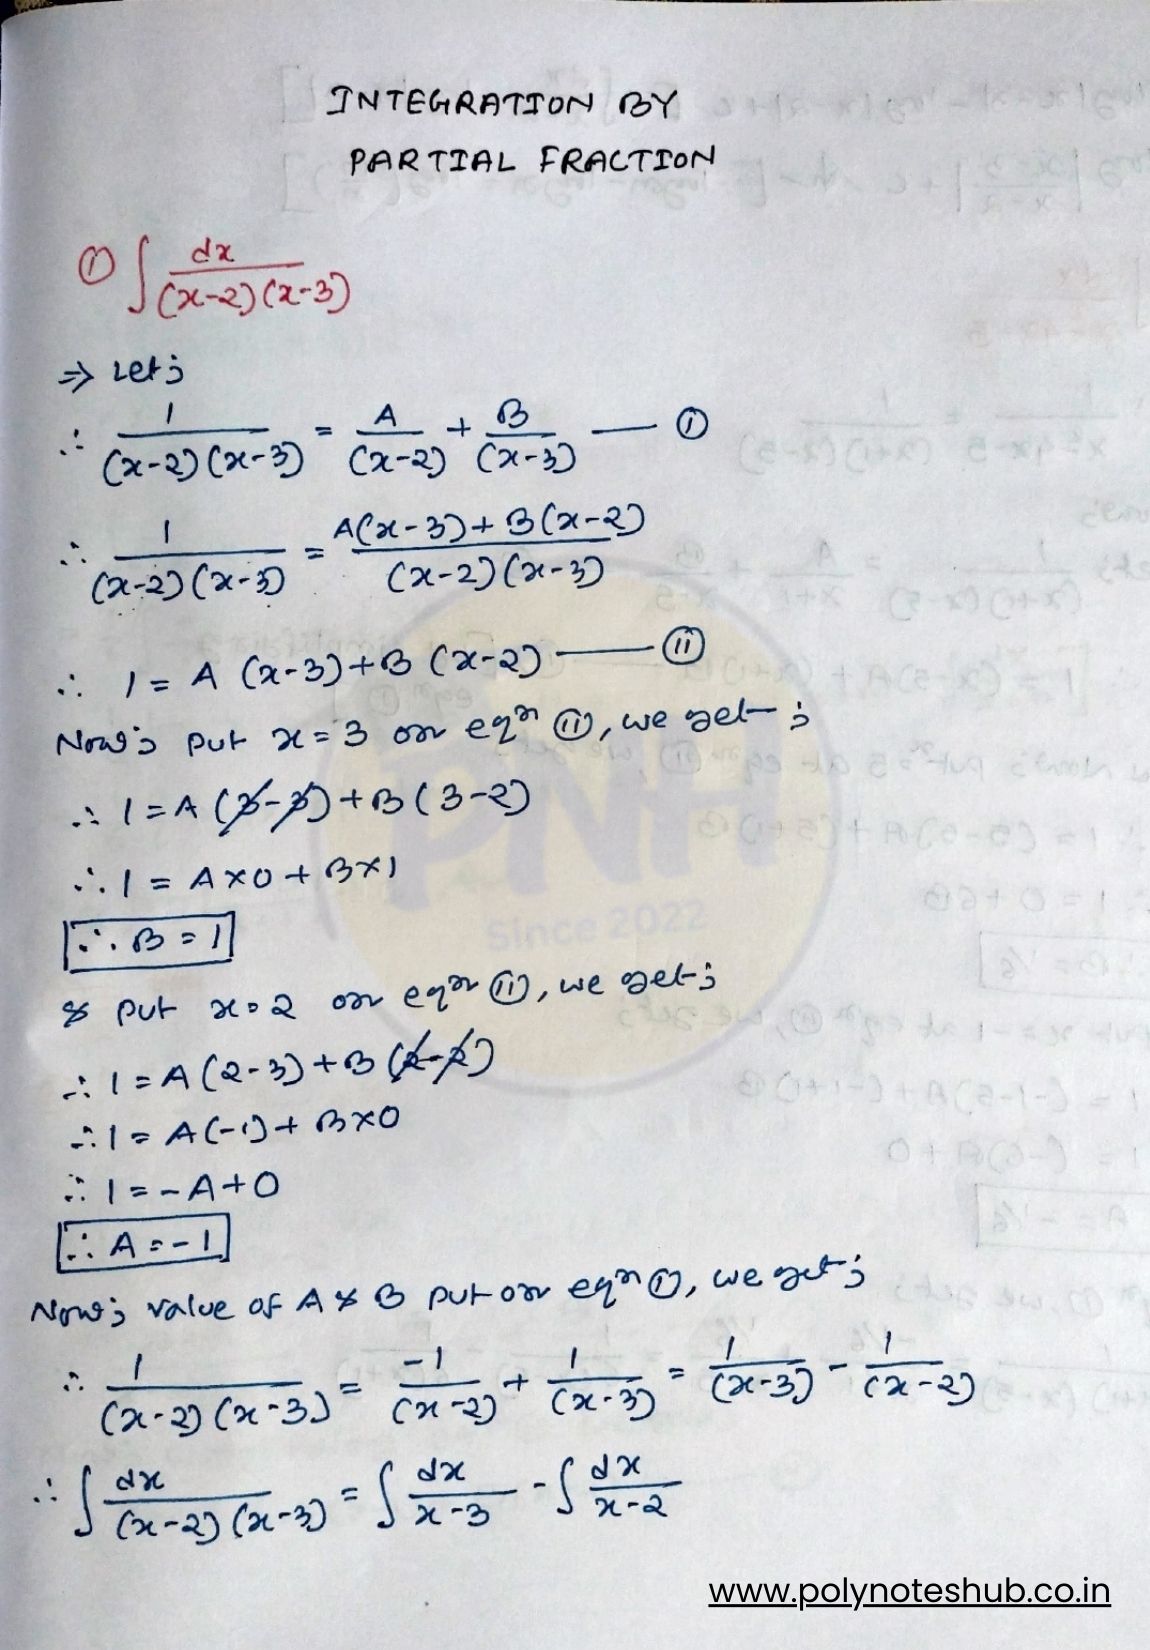 INTEGRATION BY
PARTIAL FRACTION
① ∫ dx / (x-2)(x-3)
⇒ Let;
∴ 1 / (x-2)(x-3) = A / (x-2) + B / (x-3) — ⓘ
∴ 1 / (x-2)(x-3) = A(x-3) + B(x-2) / (x-2)(x-3)
∴ 1 = A (x-3) + B (x-2) — ⓘⓘ
Now; put x = 3 on eqn ⓘⓘ, we get;
∴ 1 = A (3-3) + B (3-2)
∴ 1 = A×0 + B×1
∴ B = 1
& put x = 2 on eqn ⓘⓘ, we get;
∴ 1 = A (2-3) + B (2-2)
∴ 1 = A(-1) + B×0
∴ 1 = -A + 0
∴ A = -1
Now; value of A & B put on eqn ⓘ, we get;
∴ 1 / (x-2)(x-3) = -1 / (x-2) + 1 / (x-3) = 1 / (x-3) - 1 / (x-2)
∴ ∫ dx / (x-2)(x-3) = ∫ dx / x-3 - ∫ dx / x-2
PNH
Since 2022
www.polynoteshub.co.in